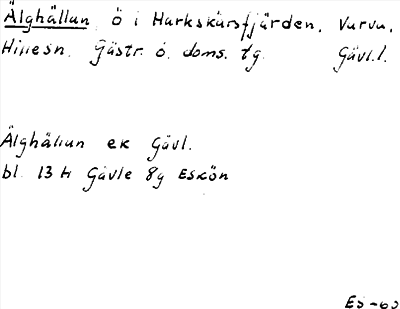 Älghällan, ö i Harkskärsfjärden, Varva,
Hillesn. Gästr. ö. doms. tg. Gävl.l.
Älghällan ek Gävl.
bl. 13 H Gävle 8g Eskön
ES-60